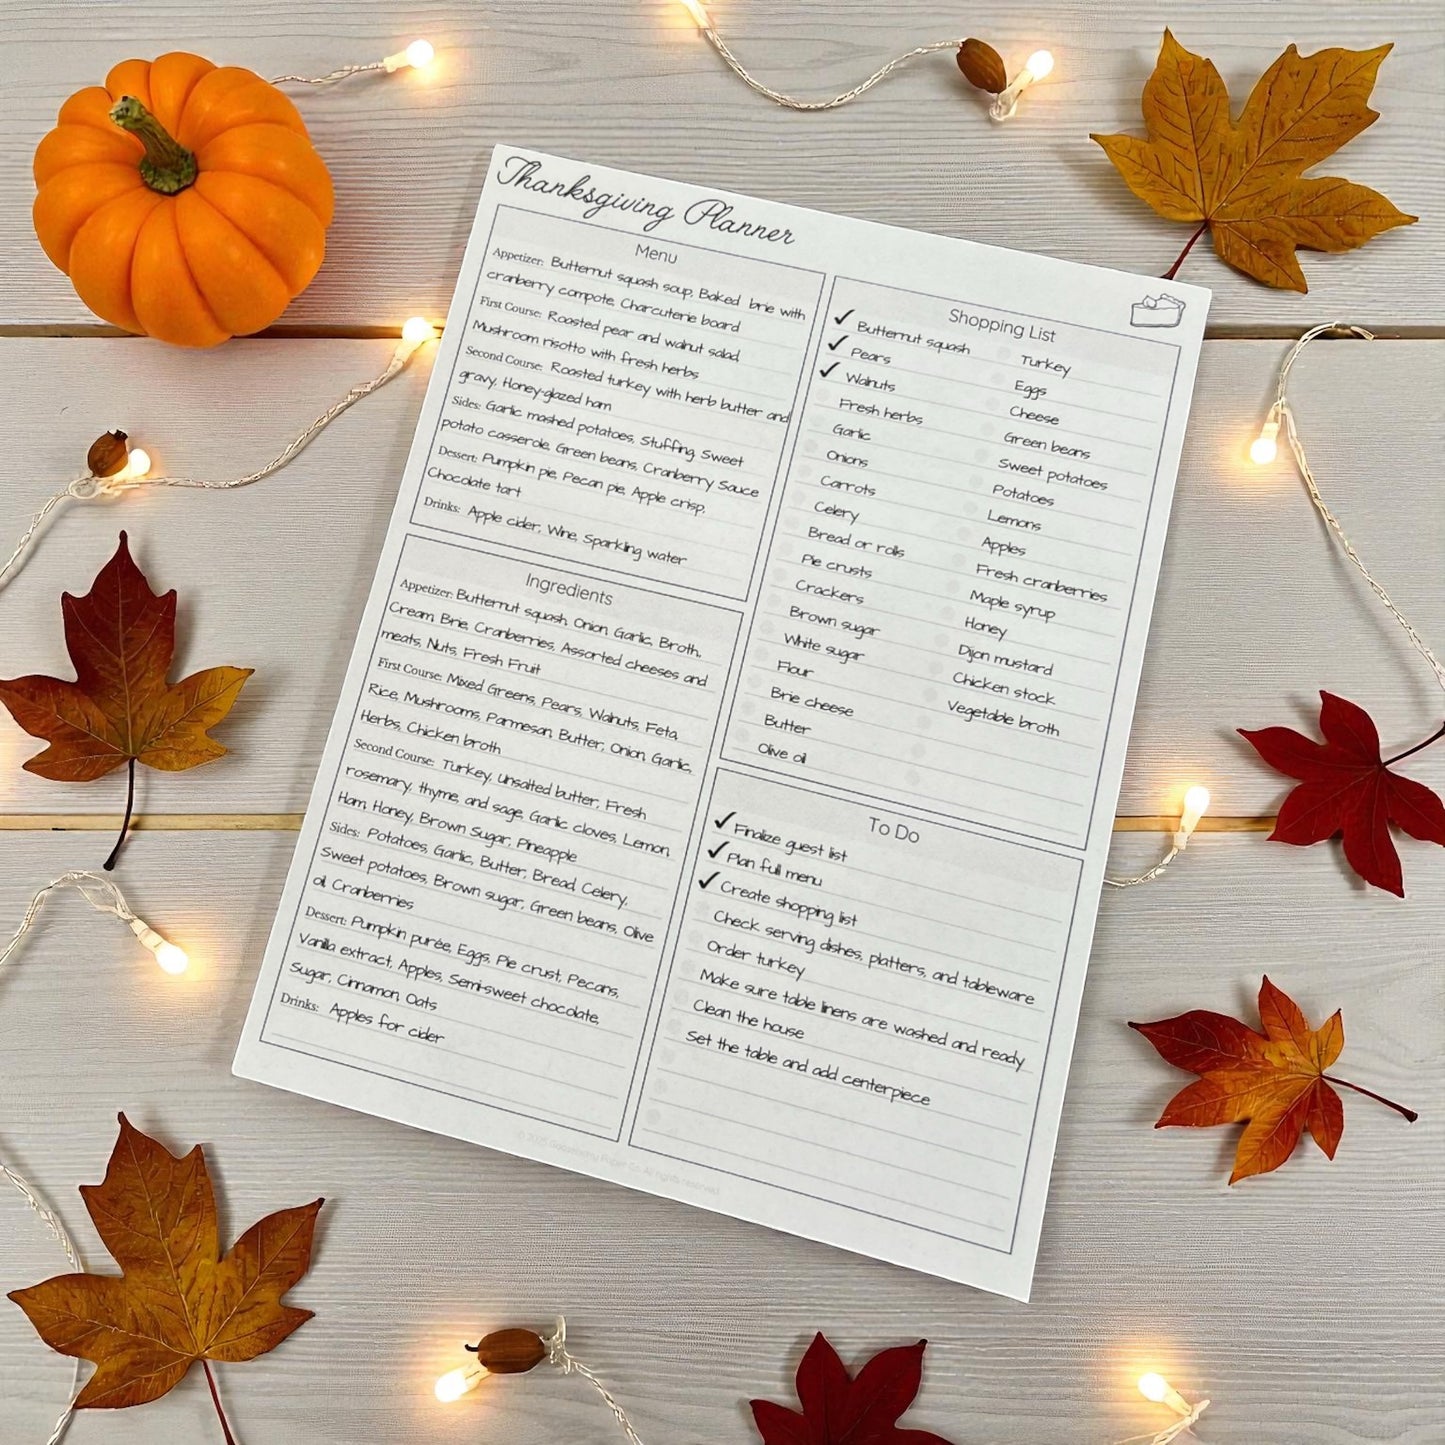 Thanksgiving Planner
Menu
Appetizer: Butternut squash soup, Baked brie with
cranberry compote, Charcuterie board
First Course: Roasted pear and walnut salad,
Mushroom risotto with fresh herbs
Second Course: Roasted turkey with herb butter and
gravy, Honey-glazed ham
Sides: Garlic mashed potatoes, Stuffing, Sweet
potato casserole, Green beans, Cranberry Sauce
Dessert: Pumpkin pie, Pecan pie, Apple crisp,
Chocolate tart
Drinks: Apple cider, Wine, Sparkling water
Ingredients
Appetizer: Butternut squash, Onion, Garlic, Broth,
Cream, Brie, Cranberries, Assorted cheeses and
meats, Nuts, Fresh Fruit
First Course: Mixed Greens, Pears, Walnuts, Feta
Rice, Mushrooms, Parmesan, Butter, Onion, Garlic,
Herbs, Chicken broth
Second Course: Turkey, unsalted butter, Fresh
rosemary, thyme, and sage, Garlic cloves, Lemon,
Ham, Honey, Brown Sugar, Pineapple
Sides: Potatoes, Garlic, Butter, Bread, Celery,
Sweet potatoes, Brown sugar, Green beans, Olive
oil, Cranberries
Dessert: Pumpkin purée, Eggs, Pie crust, Pecans,
Vanilla extract, Apples, Semi-sweet chocolate,
Sugar, Cinnamon, Oats
Drinks: Apples for cider
Shopping List
✓ Butternut squash
✓ Pears
✓ Walnuts
Fresh herbs
Garlic
Onions
Carrots
Celery
Bread or rolls
Pie crusts
Crackers
Brown sugar
White sugar
Flour
Brie cheese
Butter
Olive oil
Turkey
Eggs
Cheese
Green beans
Sweet potatoes
Potatoes
Lemons
Apples
Fresh cranberries
Maple syrup
Honey
Dijon mustard
Chicken stock
Vegetable broth
To Do
✓ Finalize guest list
✓ Plan full menu
✓ Create shopping list
Check serving dishes, platters, and tableware
Order turkey
Make sure table linens are washed and ready
Clean the house
Set the table and add centerpiece
© 2025 Paper Co. All rights reserved